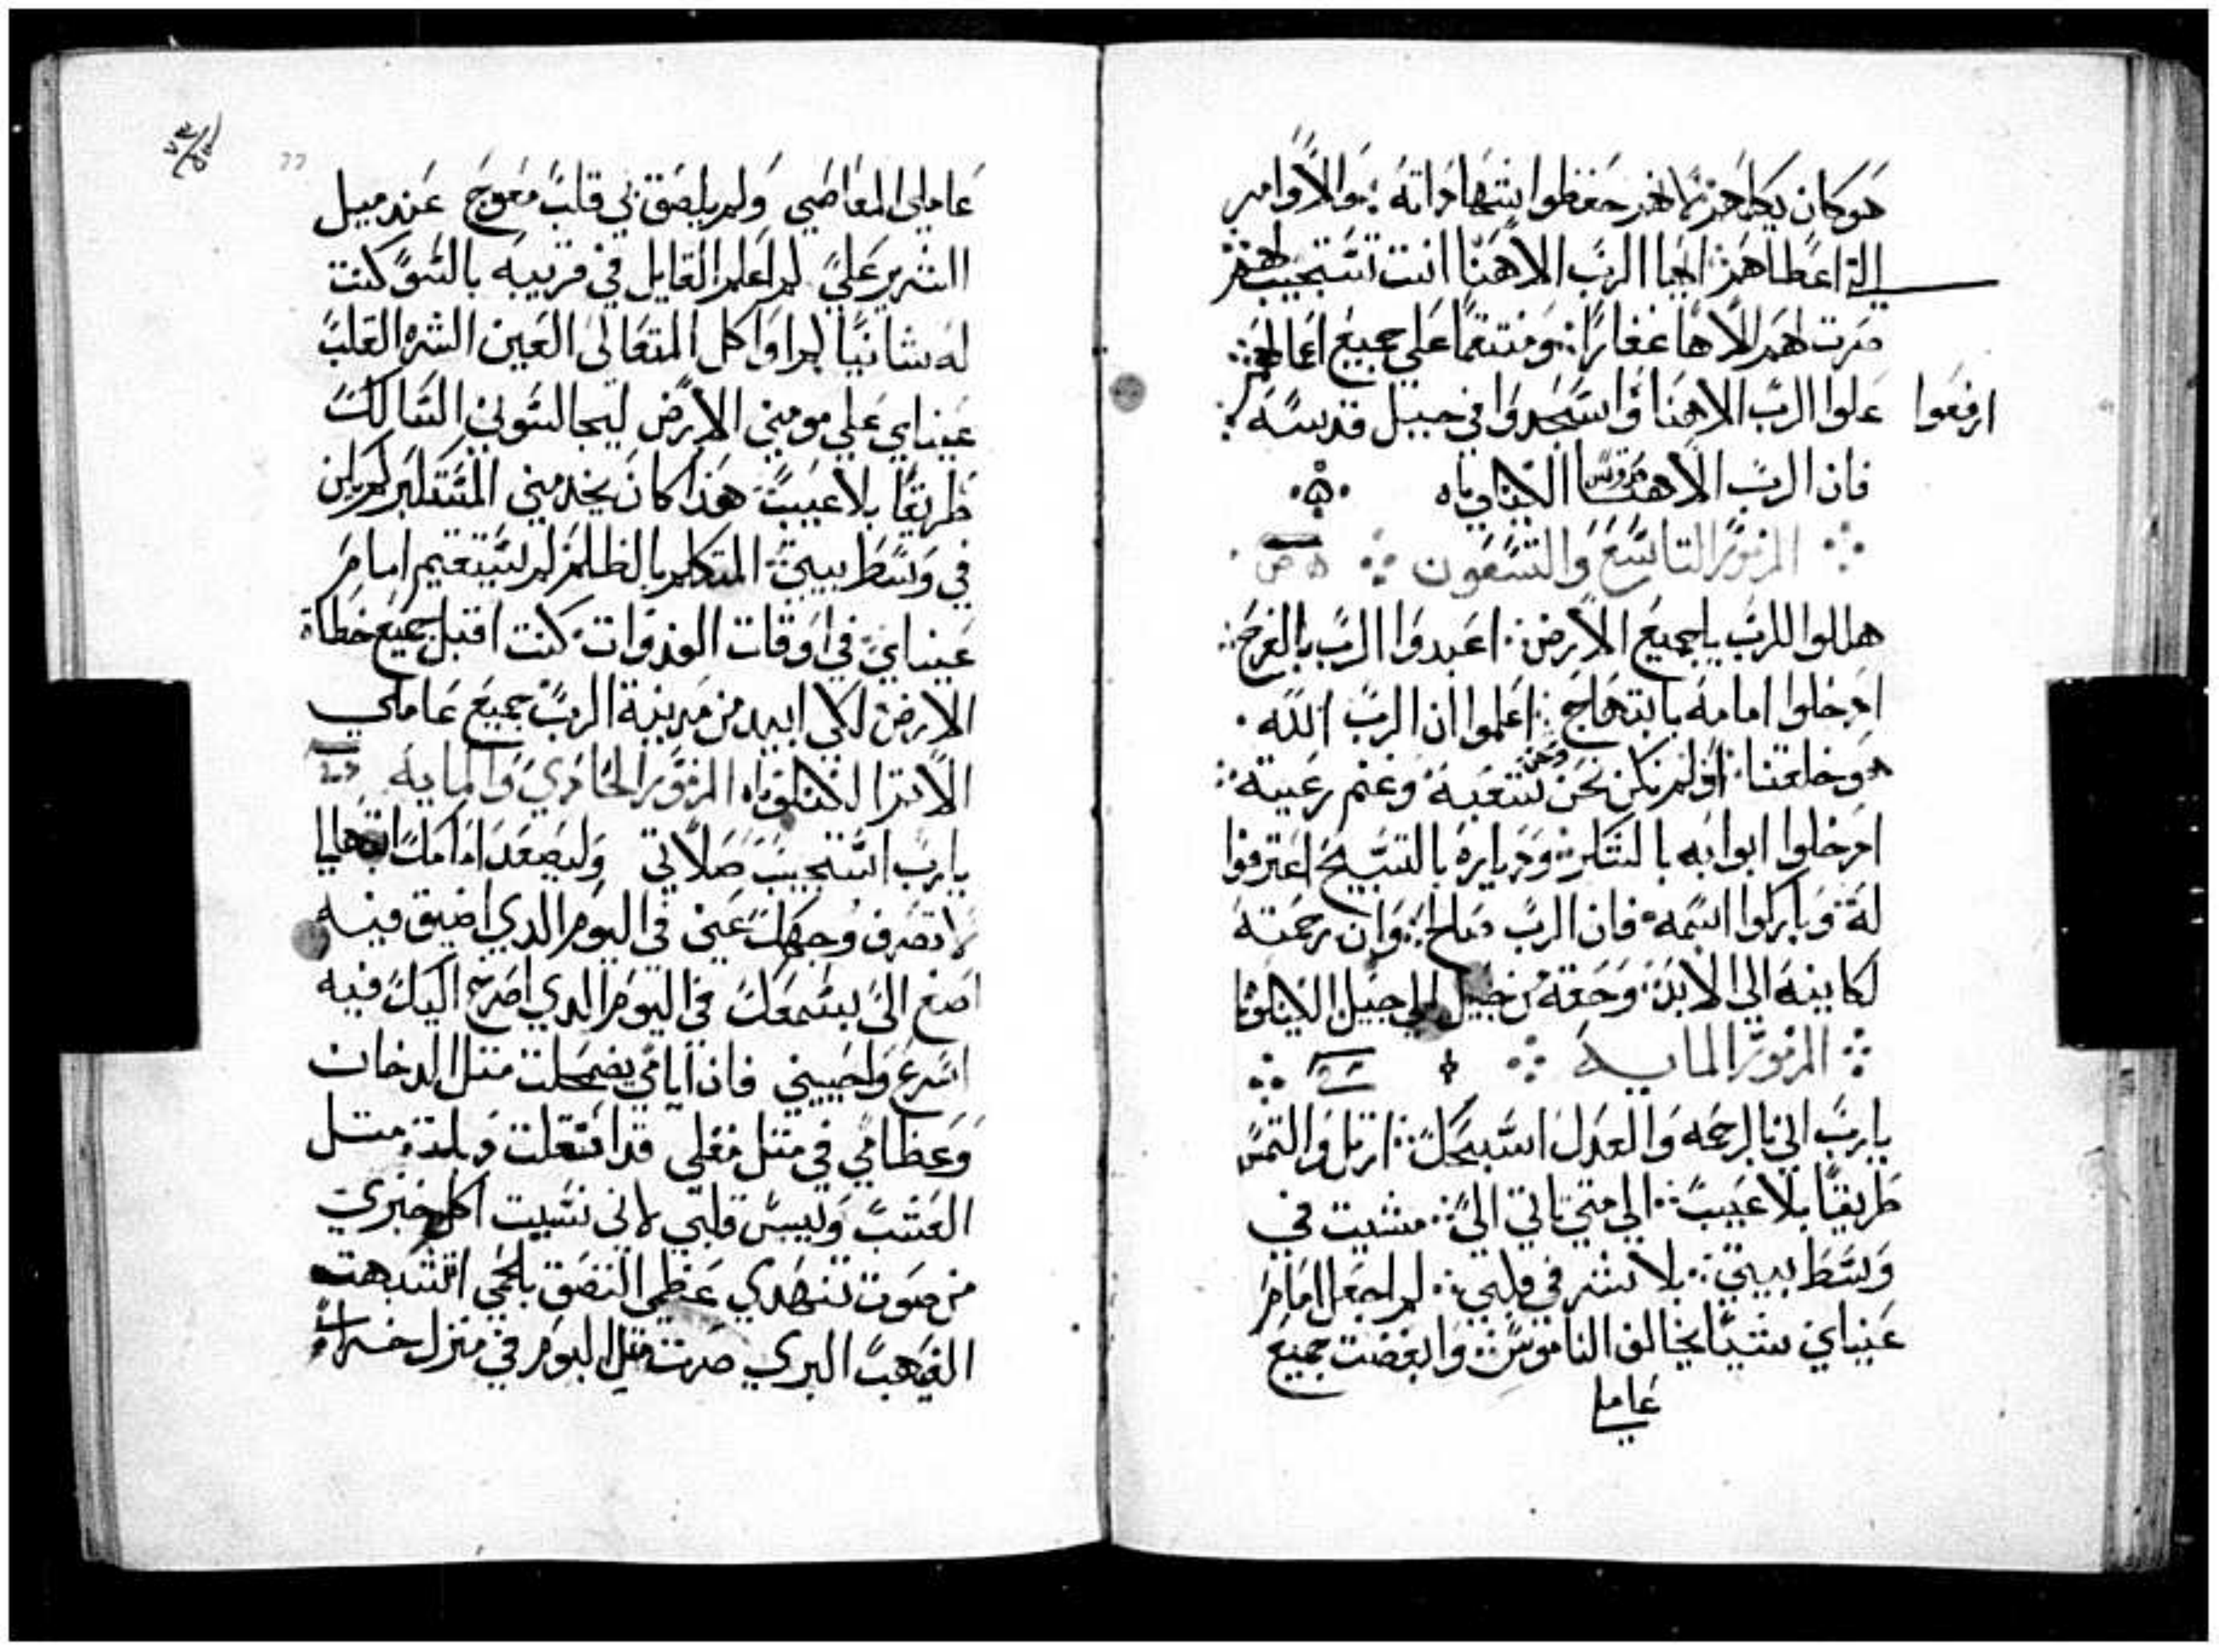 هو كان يكلمهم لانهم حفظوا شهاداته والاوامر
التي اعطاهم ايها الرب الاهنا انت تستجيب لهم
صرت لهم الاها غفارا ومنتقما علي جميع اعمالهم
ارفعوا
علوا الرب الاهنا واسجدوا في جبل قدسه
فان الرب الاهنا قدوس الليلوياه
المزمور التاسع والتسعون
هللوا للرب يا جميع الارض اعبدوا الرب بالفرح
ادخلوا امامه بابتهاج اعلموا ان الرب الله
هو خلقنا ولم نكن نحن ونحن شعبه وغنم رعيته
ادخلوا ابوابه بالشكر ودياره بالتسبيح اعترفوا
له وباركوا اسمه فان الرب صالح وان رحمته
لكاينه الي الابد وحقه من جيل الي جيل الليلويا
المزمور المايه
يا رب اني بالرحمه والعدل اسبحك ارتل والتمس
طريقا بلا عيب الي متي تاتي الي مشيت في
وسط بيتي بلا شر في قلبي لم اجعل امام
عيناي شيا يخالف الناموس وابغضت جميع
عاملي
عاملي المعاصي ولم يلصق بي قلب معوج عند ميل
الشرير علي لم اعلم القايل في قريبه بالسو كنت
له شانيا لم اواكل المتعالي العين الشره القلب
عيناي علي مومني الارض ليجالسوني السالك
طريقا بلا عيب هذا كان يخدمني المتكبر لم يكن
في وسط بيتي المتكلم بالظلم لم يستقيم امام
عيناي في اوقات الغدوات كنت اقتل جميع خطاة
الارض لكي ابيد من مدينة الرب جميع عاملي
الاثم الليلوياه المزمور الحادي والمايه
يا رب استجيب صلاتي وليصعد امامك ابتهالي
لا تصرف وجهك عني في اليوم الدي اضيق فيه
اصغ الي بسمعك في اليوم الدي اصرخ اليك فيه
اسرع واجيبني فان ايامي اضمحلت متل الدخان
وعظامي في متل مقلي قد اشتعلت وبلدت متل
العشب ويبس قلبي لاني نسيت اكل خبزي
من صوت تنهدي عظمي التصق بلحمي اتشبهت
القهب البري صرت متل البوم في منزل خراب